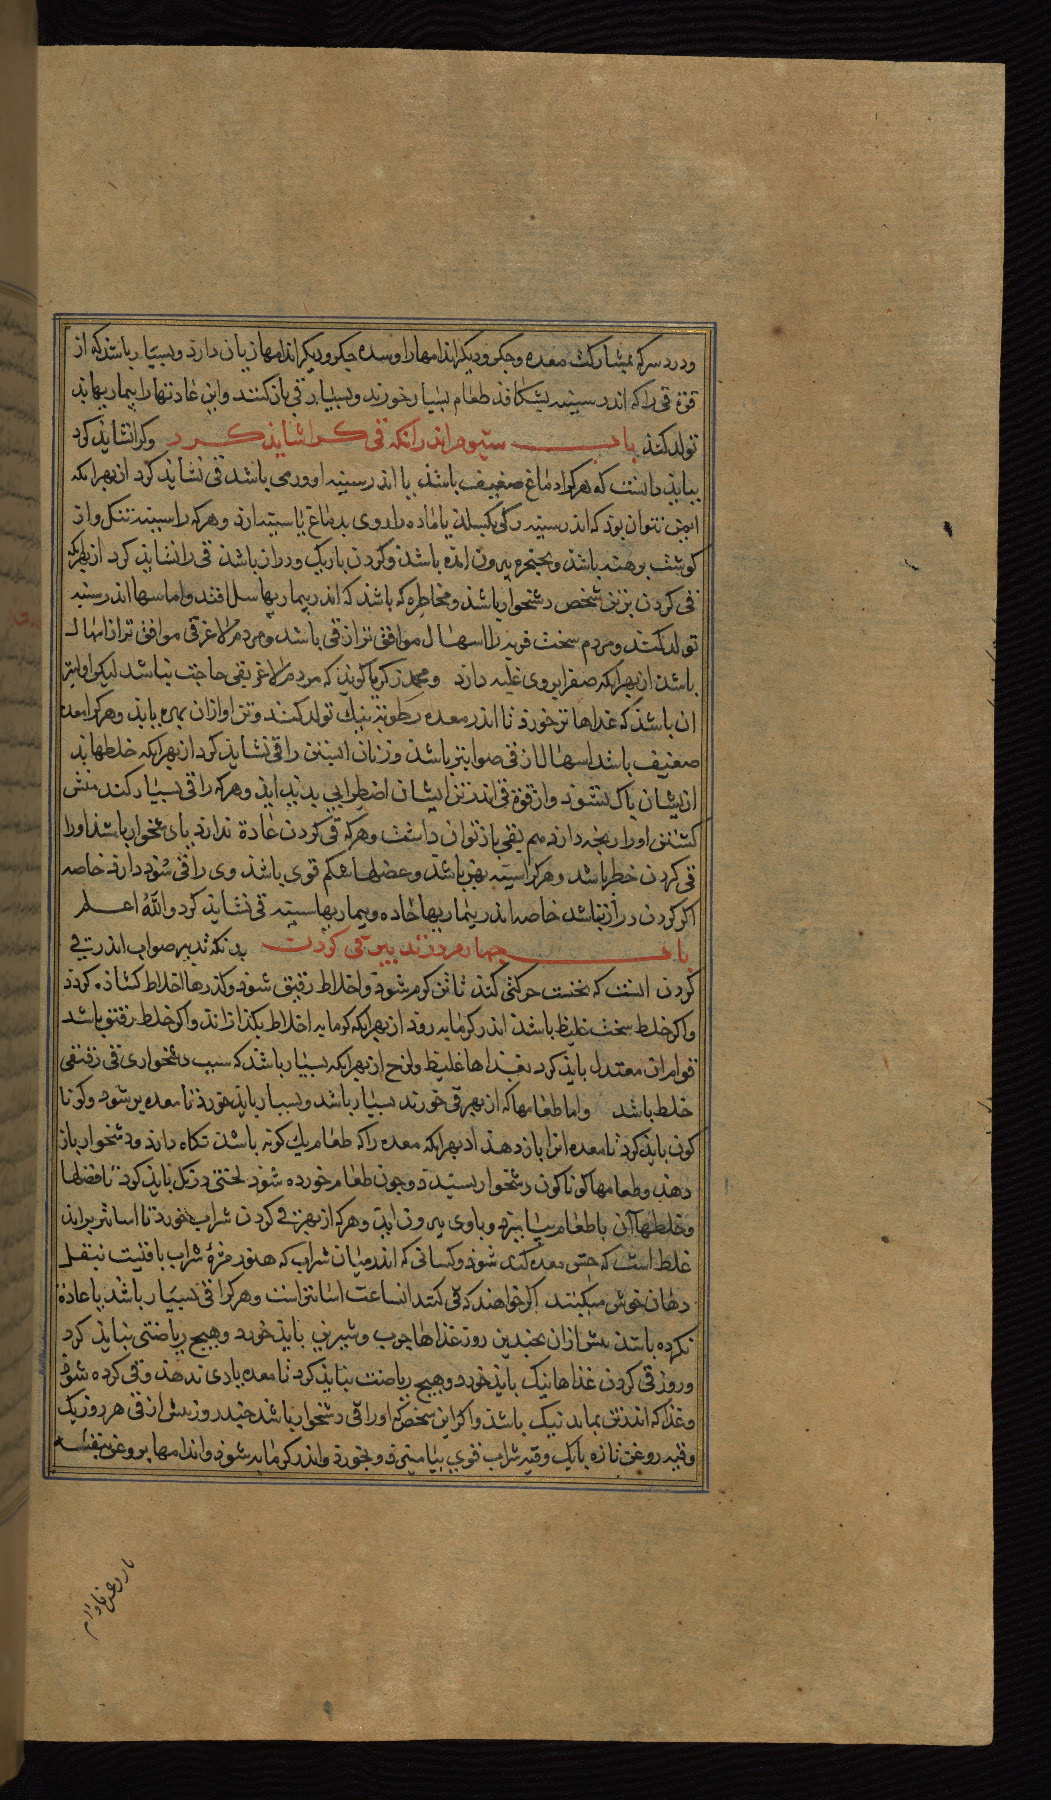 ودرد سر که بمشارکت معده وجگر ودیگر اندامها را وسده جگر ودیگر اندامها زیان دارد وبسیار باشد که از
قوة قی را که اندر سینه بشکافد طعام بسیار خورند وبسیار قی باز کنند واین عادتها را بیماریها بد
تولد کند باب سیوم اندر آنکه قی کرا شاید کرد وکرا نشاید کرد
بباید دانست که هر کرا دماغ ضعیف باشد یا اندر سینه او ورمی باشد قی نشاید کرد از بهر آنکه
ایمن نتوان بود که اندر سینه رگی بگسلد یا ماده را روی بدماغ یا سینه ارد وهر که را سینه تنگ واز
گوشت برهنه باشد وحنجره بیرون آمده باشد وگردن باریک ودراز باشد قی را نشاید کرد از بهر آنکه
قی کردن برین شخص دشخوار باشد ومخاطره که باشد که اندر بیماریها سل افتد واماسها اندر سینه
تولد کند ومردم سخت فربه را اسهال موافق تر از قی باشد ومردم لاغر قی موافق تر از اسهال
باشد از بهر آنکه صفرا بر وی غلبه دارد ومحمد زکریا گوید که مردم لاغر بقی حاجت نباشد لیکن اولیتر
ان باشد که غذاها تر خورد تا اندر معده رطوبة نیک تولد کند وتن او ازان بهره یابد وهر کرا معده
ضعیف باشد اسهال از قی صوابتر باشد وزنان ابستن را قی نشاید کرد از بهر آنکه خلطها بد
از ایشان پاک نشود واز قوة قی اندر تن ایشان اضطرابی پدید اید وهر که را قی بسیار کند منش
گشتن او را رنجه دارد هم بقی باز توان داشت وهر که قی کردن عادة ندارد یا وی دشخوار باشد او را
قی کردن خطر باشد وهر کرا سینه پهن باشد وعضلها شکم قوی باشد وی را قی سود دارد خاصه
اگر گردن دراز نباشد خاصه اندر بیماریها حاده وبیماریها سینه قی نشاید کرد والله اعلم
باب چهارم در تدبیر قی کردن بدانکه تدبیر صواب اندر قی
کردن انست که نخست حرکتی کند تا تن گرم شود واخلاط رقیق شود وگذرها اخلاط گشاده گردد
واگر خلط سخت غلیظ باشد اندر گرمابه رود از بهر آنکه گرمابه اخلاط بگدازاند واگر خلط رقیق باشد
قوام ان معتدل باید کرد بغذاها غلیظ ولزج از بهر آنکه بسیار باشد که سبب دشخواری قی رقیقی
خلط باشد واما طعامها که از بهر قی خورند بسیار باشد وبسیار باید خورد تا معده پر شود وگونا
گون باید کرد تا معده انرا باز دهد از بهر آنکه معده را که طعام یک گونه باشد نگاه دارد ودشخوار باز
دهد وطعامها گوناگون دشخوار بستد وچون طعام خورده شود لختی درنگ باید کرد تا فضلها
وخلطها آن با طعام بیامیزد وبا وی بیرون اید وهر که از بهر قی کردن شراب خورد تا اسانتر براید
غلط است که حس معده کند شود وکسانی که اندر میان شراب که هنوز مزه شراب باقیست بنقل
دهان خوش میکنند اگر خواهند که قی کنند انساعت اسانتر است وهر کرا قی بسیار باشد یا عادة
نکرده باشد پیش ازان بچندین روز غذاها چرب وشیرین باید خورد وهیچ ریاضتی نباید کرد
وروز قی کردن غذاها نیک باید خورد وهیچ ریاضت نباید کرد تا معده یاری ندهد وقی کرده شود
وغذا که اندر تن بماند نیک باشد واگر این شخص که او را قی دشخوار باشد چند روز پیش از قی هر روز یک
وقیه روغن تازه با یک وقیه شراب قوی بیامیزد وبخورد واندر گرمابه شود واندامها بروغن بنفشه